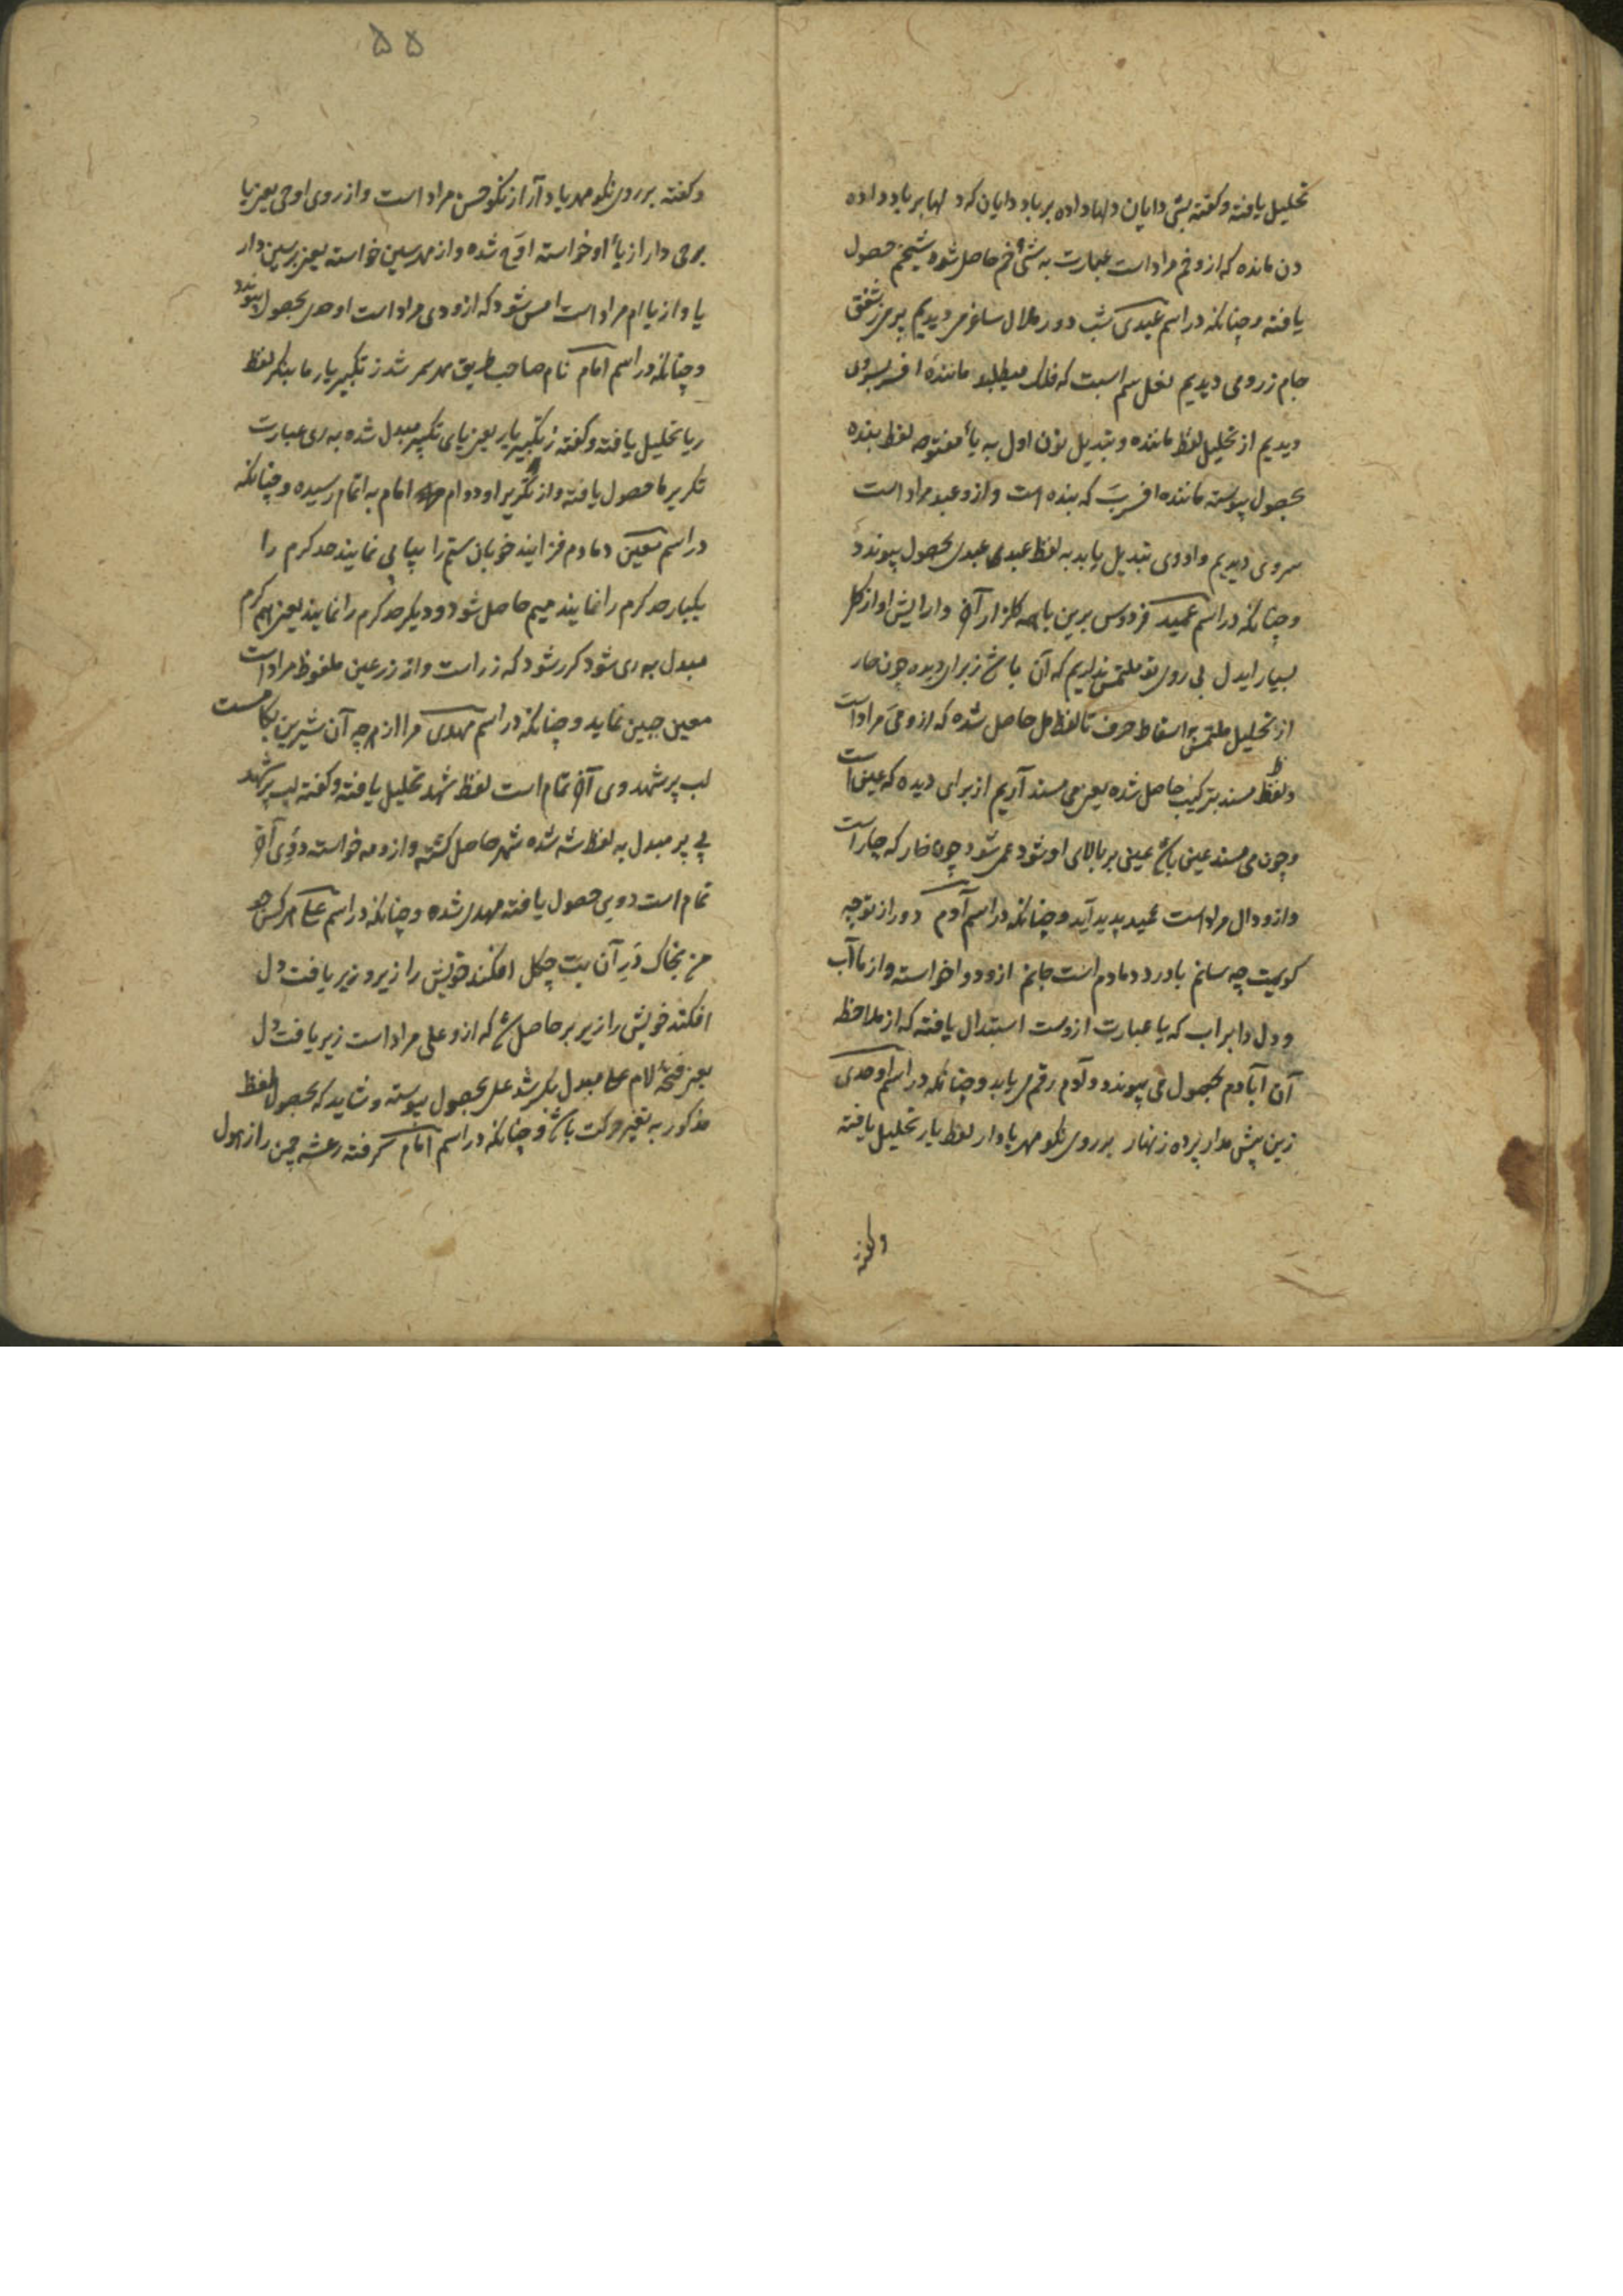 تحلیل یافته و کفته بشی دایان دلها داده بر باد دایان که دلها بر باد داده
دن مانده که ازو خم مراد است عبارت به شئ خم حاصل شود شیخم حصول
یافته و چنانکه در اسم عبدی شب دور هلال ساغر می دیدیم پر می ز شفق
جام زر و می دیدیم نعل سم اسبت که فلک میطلبد مانندهٔ افسر بسروی
دیدیم از تحلیل لفظ ماننده و تبدیل نون اول به یأ مفتوحه لفظ بنده
بحصول پیوسته ماننده افسر بَ که بنده است و ازو عبد مراد است
سروی دیدیم واو وی تبدیل یابد به لفظ عبدی عبدی بحصول پیوندد
و چنانکه در اسم عمید فردوس برین باهمه کلزار آن دارایش او از کل
بسیار ایدل بی روی تو ملتمس نداریم که آن باغ ز برای دیده چون خار
از تحلیل ملتمس و اسقاط حرف تا لفظ مل حاصل شده که ازو می مراد است
و لفظ مسند بترکیب حاصل شده یعنی می مسند آریم از برای دیده که عین است
و چون می مسند عین باشد یعنی بر بالای او شود عمی شود چون خار که چار است
و ازو دال مراد است عمید پدید آید و چنانکه در اسم آدم دور از توجه
کویمت چه سانم با درد دمادم است جانم ازو دوا خواسته و از ما آب
و دل دابراب که یا عبارت ازوست استبدال یافته که از ملاحظه
آن آبادم بحصول می پیوندد و آدم رقم می یابد و چنانکه در اسم اوحدی
زین پیش مدار پرده زنهار بر روی نکو مهر یا دار لفظ یار تحلیل یافته
وکفته
۵۵
و کفته بر روی نکو مهد یا د آر از نکو حسن مراد است و از روی او حی یعنی یا
برحی دار از یأ او خواسته اوح شده و از مهد سین خواسته یعنی بر سین دار
یا و از یا ام مراد است امس شود که ازو دی مراد است اوحدی بحصول پیوندد
و چنانکه در اسم امام نام صاحب طریق مهر سمر شد ز تکبیر یار ما بنکر لفظ
ریا تحلیل یافته و کفته ز تکبیر یار یعنی یای تکبیر مبدل شده به ری عبارت
تکریر ما حصول یافته و از تکریر او دو ام امام به اتمام رسیده و چنانکه
در اسم معین دمادم فزایند خوبان ستم را بیا می نمایند حد کرم را
یکبار حد کرم را نمایند میم حاصل شود و دیگر حد کرم را نمایند یعنی میم کرم
مبدل به ری شود کرر شود که زر است و از زر عین ملفوظ مراد است
معین جبین نماید و چنانکه در اسم مهدی مرا از هر چه آن شیرین بکامست
لب پر شهد وی آن تمام است لفظ شهد تحلیل یافته و کفته لب پر شهد
پی پر مبدل به لفظ شه شده شهر حاصل کشته و ازو مه خواسته دوی آن
تمام است دویی حصول یافته مهدی شده و چنانکه در اسم علی هر کس چو
من بخاک در آن بت چکل افکند خویش را زیر و زبر یافت دل
افکند خویش را زیر بر حاصل شد که ازو علی مراد است زبر یافت دل
یعنی فتحهٔ لام علی مبدل بکسر شد علی بحصول پیوسته و شاید که بحصول لفظ
مذکور به تغیر حرکت باشد و چنانکه در اسم امام گرفته رعشه چمن راز هول